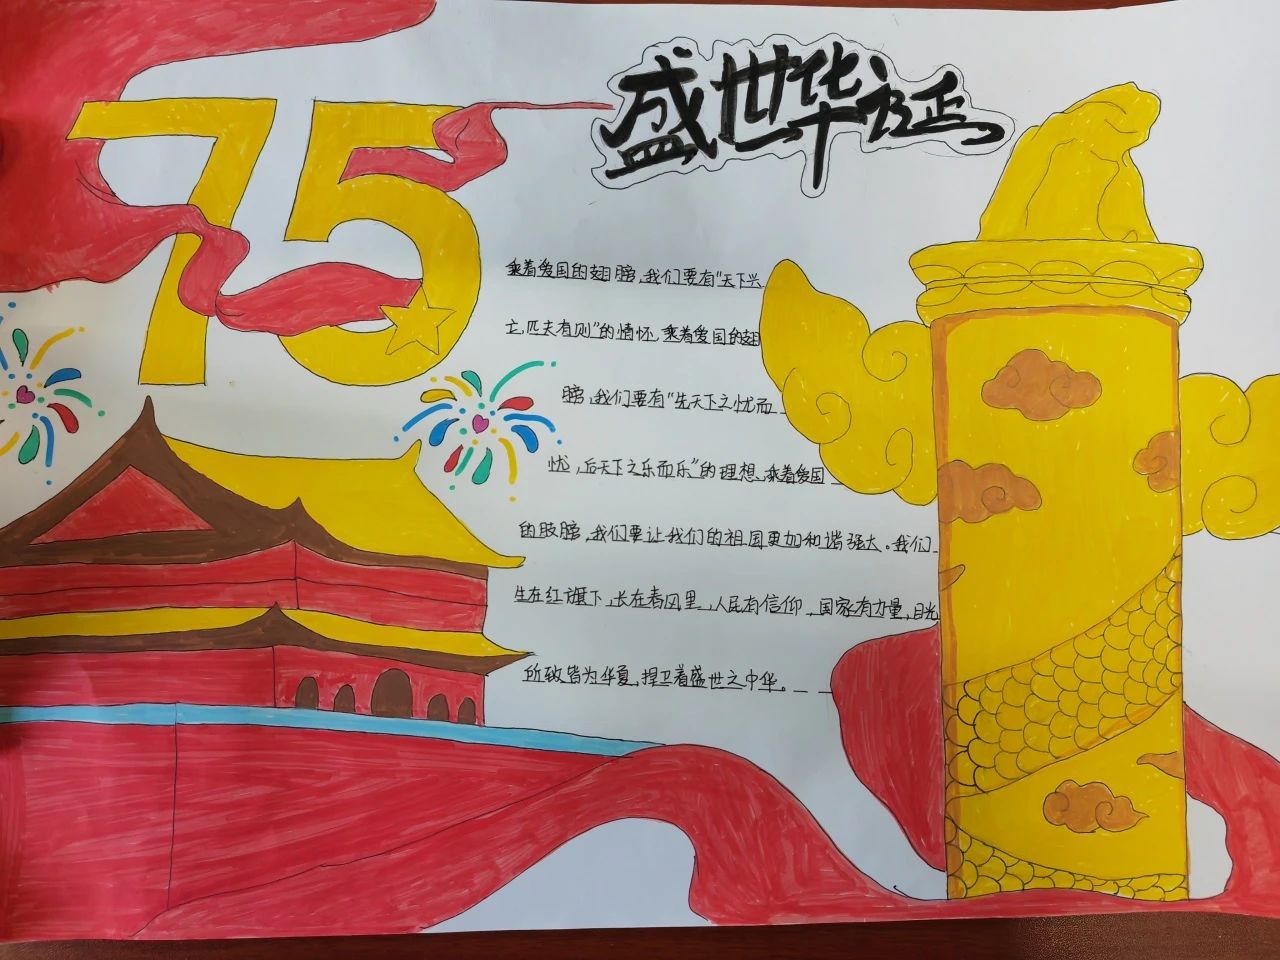 75
盛世华诞
乘着爱国的翅膀,我们要有"天下兴
亡,匹夫有则"的情怀,乘着爱国的翅
膀,我们要有"先天下之忧而
忧,后天下之乐而乐"的理想,乘着爱国
的肢膀,我们要让我们的祖国更加和谐强大。我们
生在红旗下,长在春风里,人民有信仰,国家有力量,目光
所致皆为华夏,捍卫着盛世之中华。